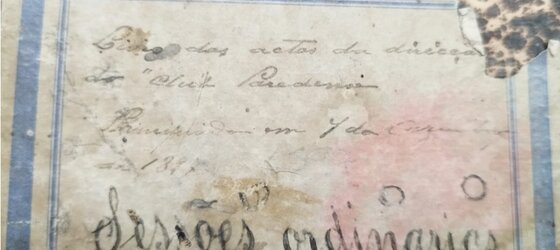 Livro das actas da direcçã
do "Club Paredense
Principiado em 7 de
de 189
Sessões ordinarias